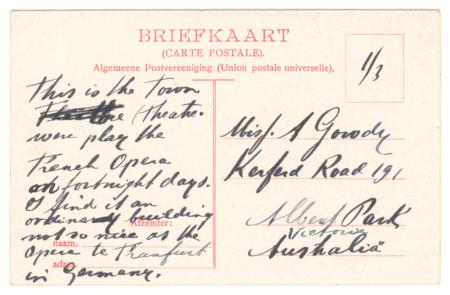 BRIEFKAART
(CARTE POSTALE).
Algemeene Postvereeniging (Union postale universelle).
1/3
this is the town
theatre.
were play the
French Opera
on fortnight days.
I find it an
ordinary building
not so nice as the
Opera te Franfurt
in Germany.
Afzender:
naam.
adres.
Miss. A Gowdy
Kerferd Road 191
Albert Park
Victoria
Australia